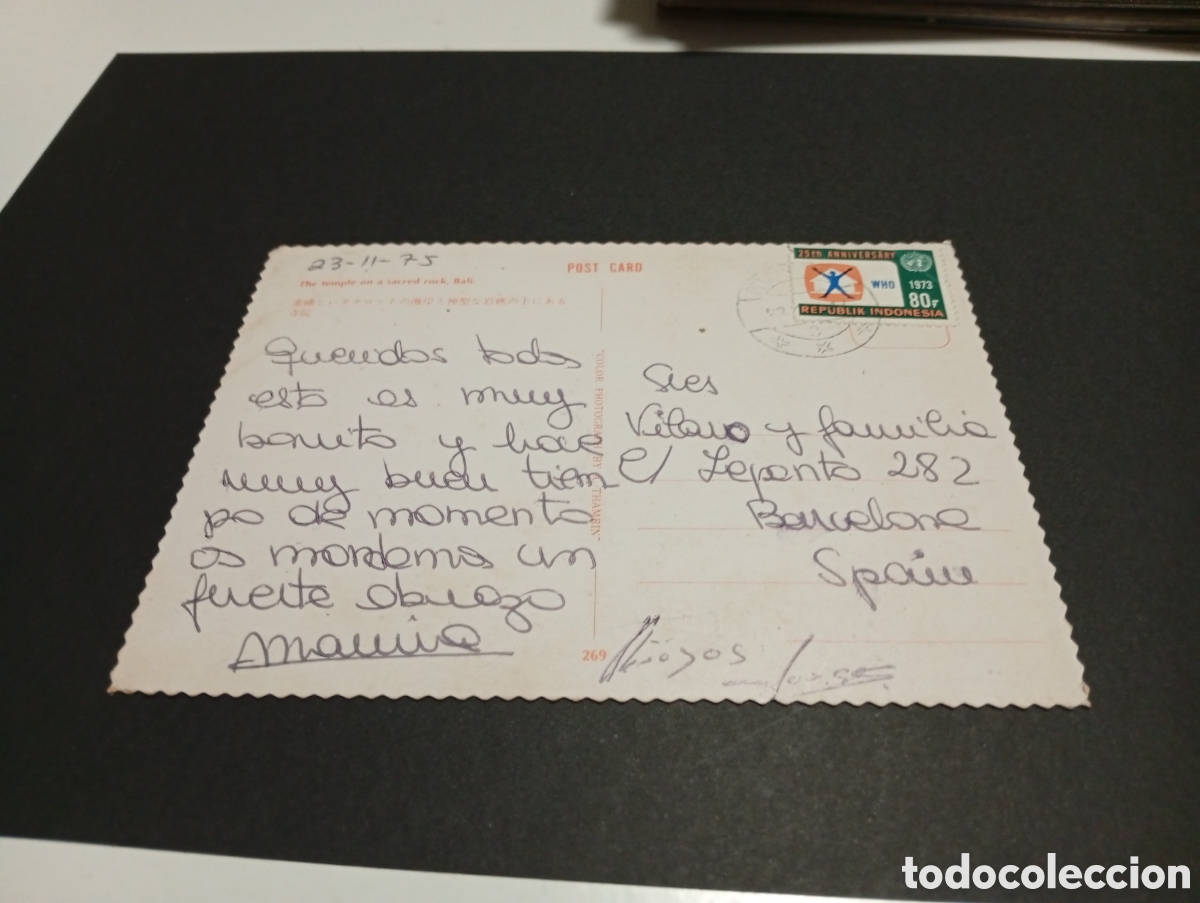 23-11-75
The temple on a sacred rock, Bali.
POST CARD
25th ANNIVERSARY
WHO 1973
80r
REPUBLIK INDONESIA
Queridos todos
esto es muy
bonito y hace
muy buen tiem
po de momento
os mandamos un
fuerte abrazo
"COLOR PHOTOGRAPH BY THAMRIN"
Sres
Vilaro y familia
C/ Lepanto 282
Barcelona
Spain
269
Jorge
todocoleccion